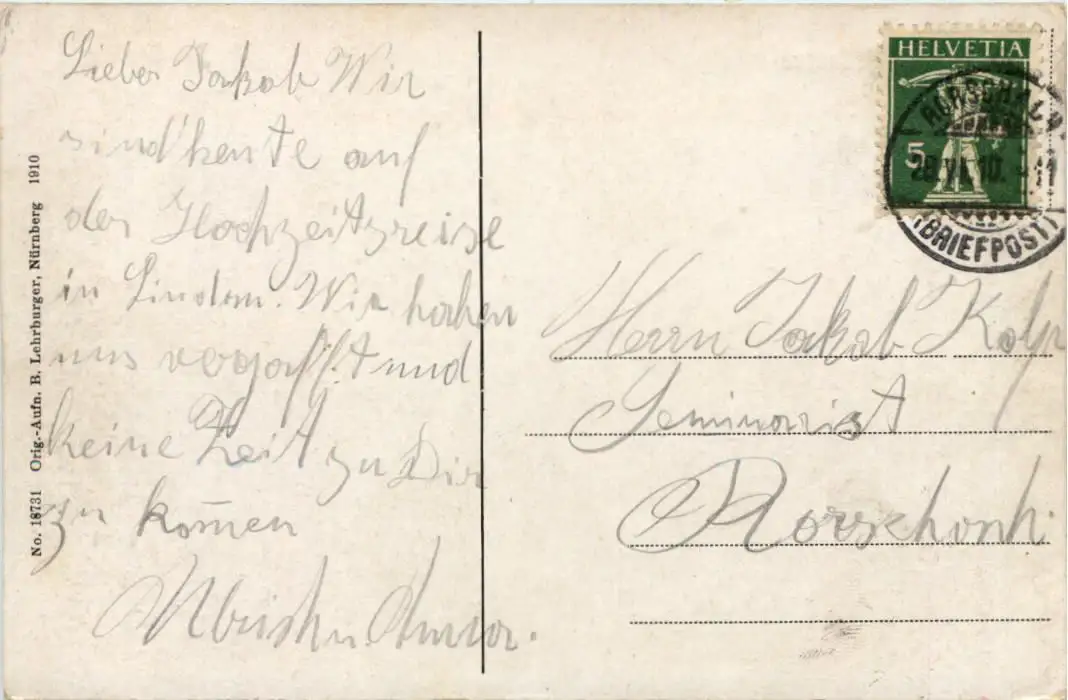 Lieber Jakob Wir
sind heute auf
der Hochzeitsreise
in Lindau. Wir haben
uns vergafft und
keine Zeit zu Dir
zu kom̄en
u. Anna.
No. 18731 Orig.-Aufn. B. Lehrburger, Nürnberg 1910
HELVETIA
5
RORSCHACH
10. - 11
(BRIEFPOST)
Herrn Jakob Kolp
Seminarist
Rorschach.